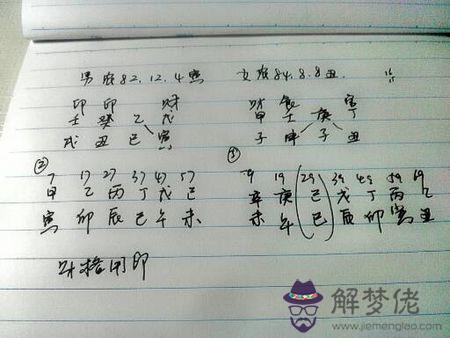 男 农82,12,4寅 女农84.8.8丑.
印 印 财 财 食 官
壬 癸 乙 戊 甲 壬 庚 丁
戌 丑 巳 寅 子 申 子 丑
② ①
7 17 27 37 47 57 9 19 29 39 49 59 69
甲 乙 丙 丁 戊 己 辛 庚 己 戊 丁 丙 乙
寅 卯 辰 巳 午 未 未 午 巳 辰 卯 寅 丑
财格用印
解梦佬
www.jiemenglao.com